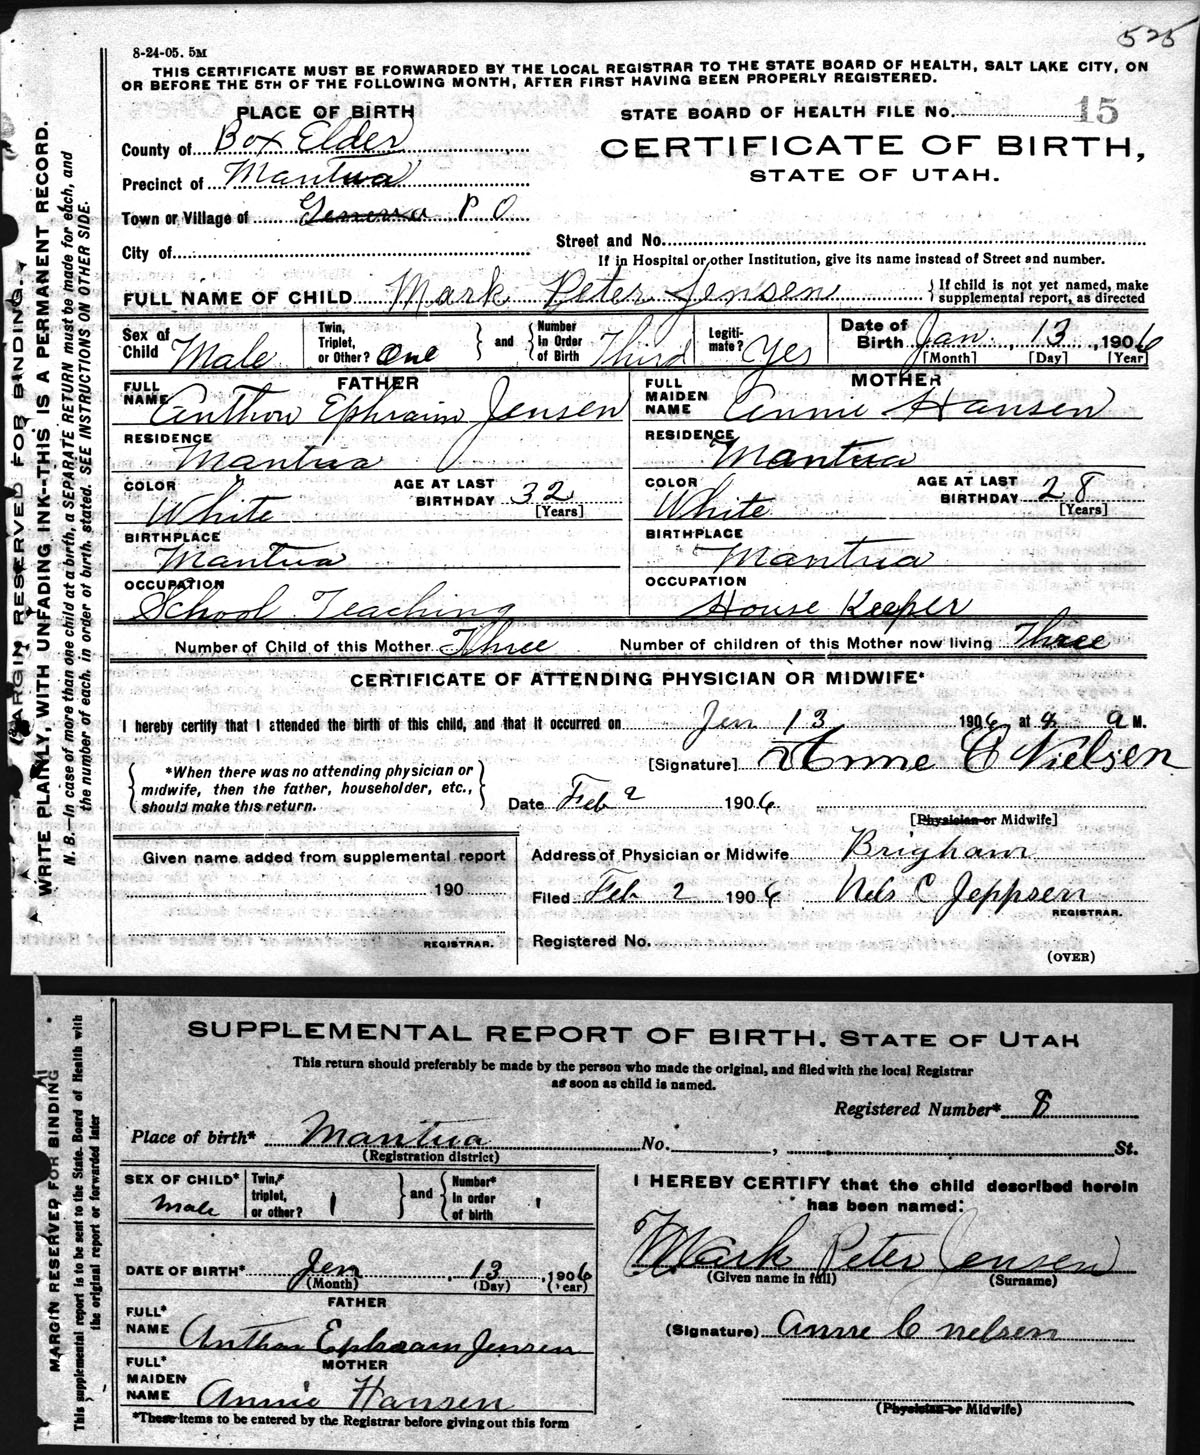 525
8-24-05. 5M
THIS CERTIFICATE MUST BE FORWARDED BY THE LOCAL REGISTRAR TO THE STATE BOARD OF HEALTH, SALT LAKE CITY, ON
OR BEFORE THE 5TH OF THE FOLLOWING MONTH, AFTER FIRST HAVING BEEN PROPERLY REGISTERED.
PLACE OF BIRTH
STATE BOARD OF HEALTH FILE NO. 15
County of Box Elder
CERTIFICATE OF BIRTH,
STATE OF UTAH.
Precinct of Mantua
Town or Village of P O
City of
Street and No.
If in Hospital or other Institution, give its name instead of Street and number.
FULL NAME OF CHILD Mark Peter Jensen } If child is not yet named, make supplemental report, as directed
Sex of Child Male
Twin, Triplet, or Other? One } and { Number in Order of Birth Third
Legitimate? Yes
Date of Birth Jan. 13, 1906
[Month] [Day] [Year]
FATHER
FULL NAME Anthon Ephraim Jensen
MOTHER
FULL MAIDEN NAME Annie Hansen
RESIDENCE Mantua
RESIDENCE Mantua
COLOR White AGE AT LAST BIRTHDAY 32 [Years]
COLOR White AGE AT LAST BIRTHDAY 28 [Years]
BIRTHPLACE Mantua
BIRTHPLACE Mantua
OCCUPATION School Teaching
OCCUPATION House Keeper
Number of Child of this Mother Three Number of children of this Mother now living Three
CERTIFICATE OF ATTENDING PHYSICIAN OR MIDWIFE*
I hereby certify that I attended the birth of this child, and that it occurred on Jen 13 1906, at 8 a M.
{ *When there was no attending physician or midwife, then the father, householder, etc., should make this return. }
[Signature] Anne C Nielsen
Date Feb 2 1906
[Physician or Midwife]
Given name added from supplemental report
190
REGISTRAR.
Address of Physician or Midwife Brigham
Filed Feb 2 1906 Nels C Jeppsen
REGISTRAR.
Registered No.
(OVER)
MARGIN RESERVED FOR BINDING.
WRITE PLAINLY, WITH UNFADING INK--THIS IS A PERMANENT RECORD.
N. B.--In case of more than one child at a birth, a SEPARATE RETURN must be made for each, and
the number of each, in order of birth, stated. SEE INSTRUCTIONS ON OTHER SIDE.
SUPPLEMENTAL REPORT OF BIRTH, STATE OF UTAH
This return should preferably be made by the person who made the original, and filed with the local Registrar
as soon as child is named.
Registered Number* 8
Place of birth* Mantua No. , St.
(Registration district)
SEX OF CHILD* Male
Twin,* triplet, or other? 1 } and { Number* in order of birth 1
I HEREBY CERTIFY that the child described herein
has been named:
Mark Peter Jensen
(Given name in full) (Surname)
DATE OF BIRTH* Jen 13, 1906
(Month) (Day) (Year)
FATHER
FULL* NAME Anthon Ephraim Jensen
(Signature) Anne C Nelsen
MOTHER
FULL* MAIDEN NAME Annie Hansen
(Physician or Midwife)
*These items to be entered by the Registrar before giving out this form
MARGIN RESERVED FOR BINDING
This supplemental report is to be sent to the State Board of Health with
the original report or forwarded later